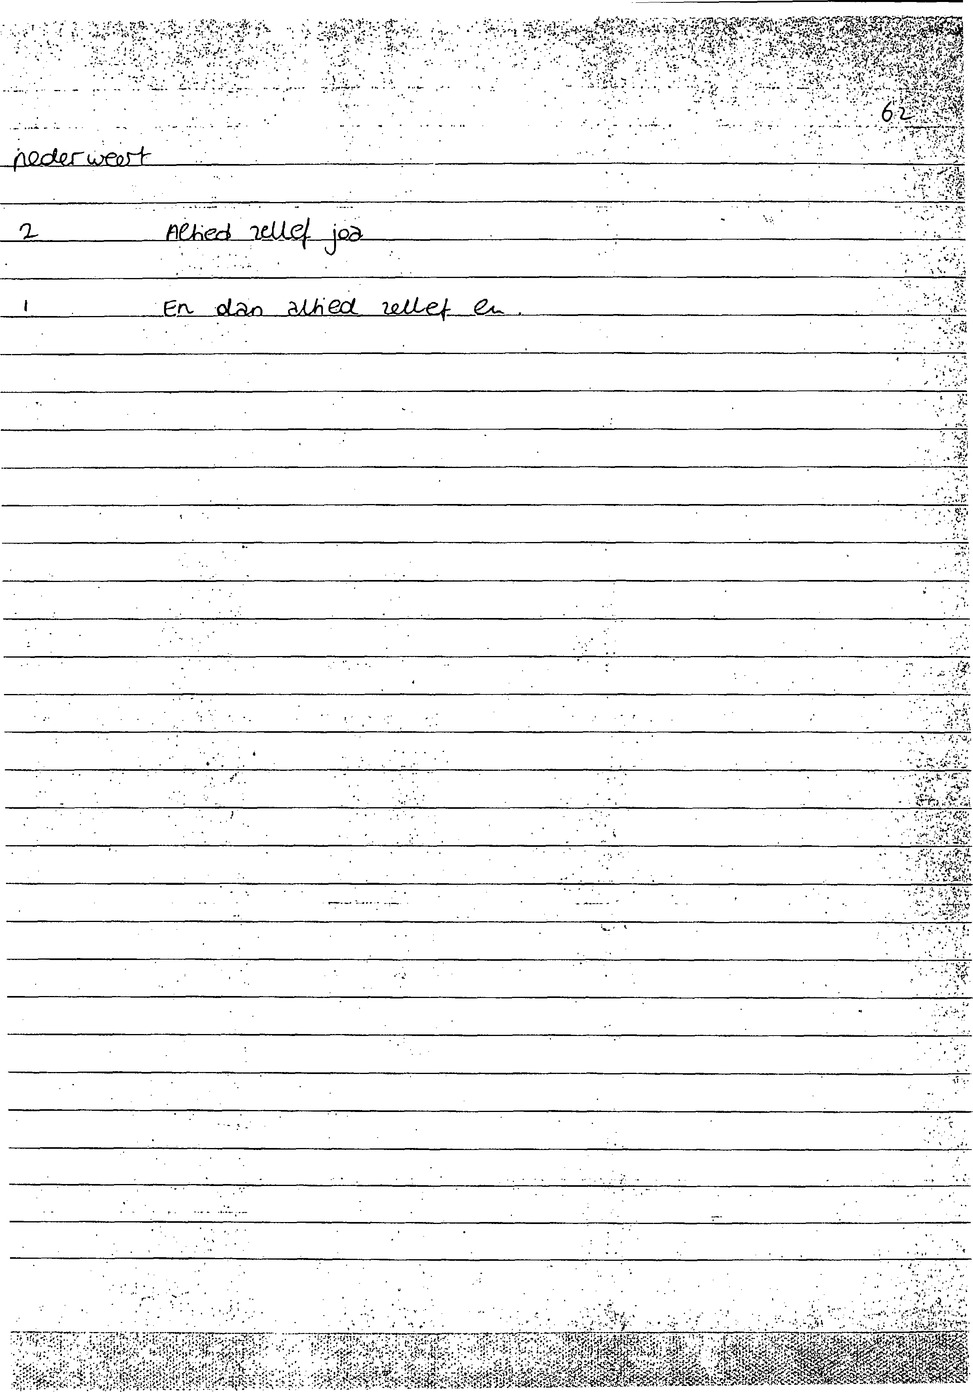 62
nederweert
2 Altied zellef joa
1 En dan altied zellef en.